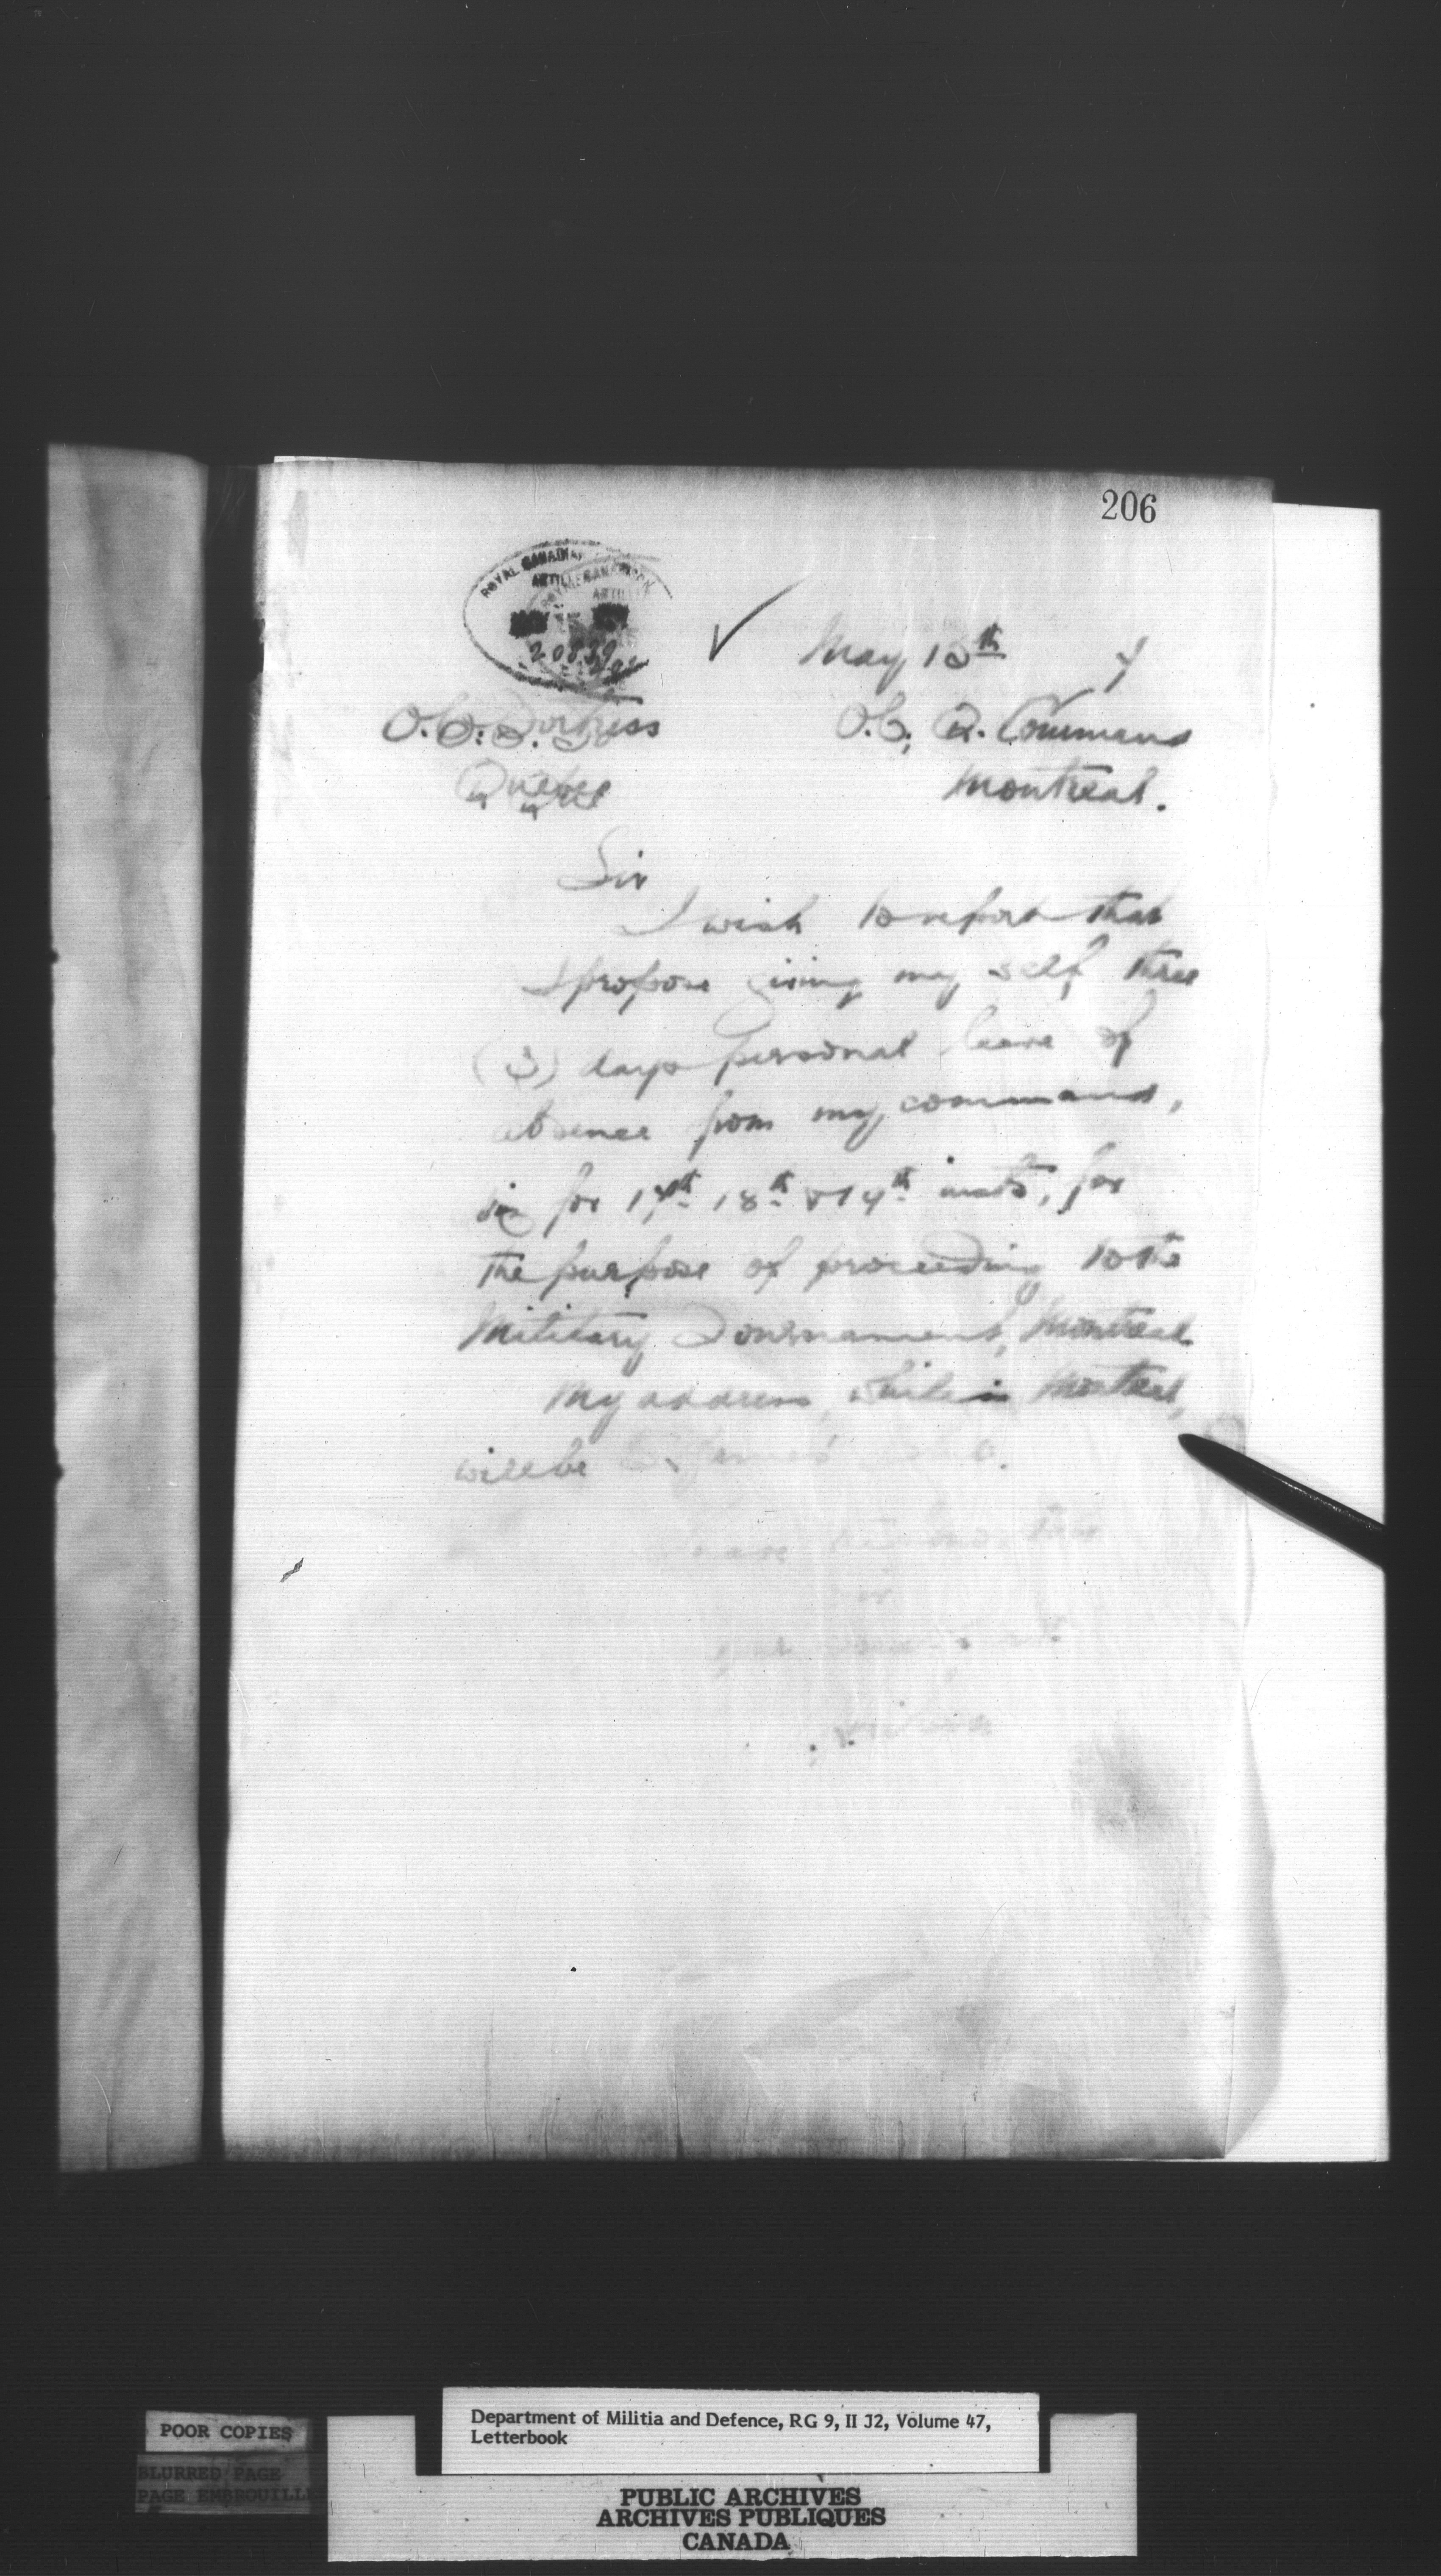 206
ROYAL CANADIAN
GARRISON
ARTILLERY
20839
May 13th 7
O.C. Fortress
Quebec
O.C. Q. Command
Montreal.
Sir
I wish to report that
I propose giving my self three
(3) days personal leave of
absence from my command,
viz for 17th 18th & 19th insts, for
the purpose of proceeding to the
Military Tournament, Montreal
My address, while in Montreal,
will be St. James' Club.
have the honor
Sir
Department of Militia and Defence, RG 9, II J2, Volume 47,
Letterbook
POOR COPIES
BLURRED PAGE
PAGE EMBROUILLE
PUBLIC ARCHIVES
ARCHIVES PUBLIQUES
CANADA